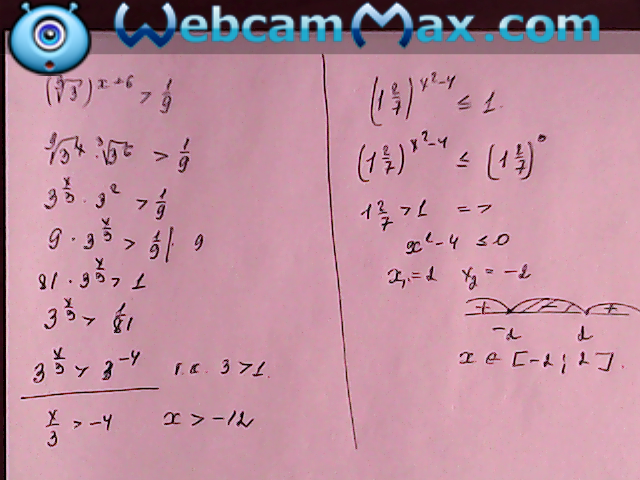 WebcamMax.com
(∛3)^(x+6) > 1/9
∛3^x · ∛3^6 > 1/9
3^(x/3) · 3^2 > 1/9
9 · 3^(x/3) > 1/9 | · 9
81 · 3^(x/3) > 1
3^(x/3) > 1/81
3^(x/3) > 3^(-4) т.к. 3 > 1
x/3 > -4 x > -12
(1 2/7)^(x²-4) ≤ 1.
(1 2/7)^(x²-4) ≤ (1 2/7)^0
1 2/7 > 1 =>
x² - 4 ≤ 0
x₁ = 2 x₂ = -2
+ - +
-2 2
x ∈ [-2; 2].